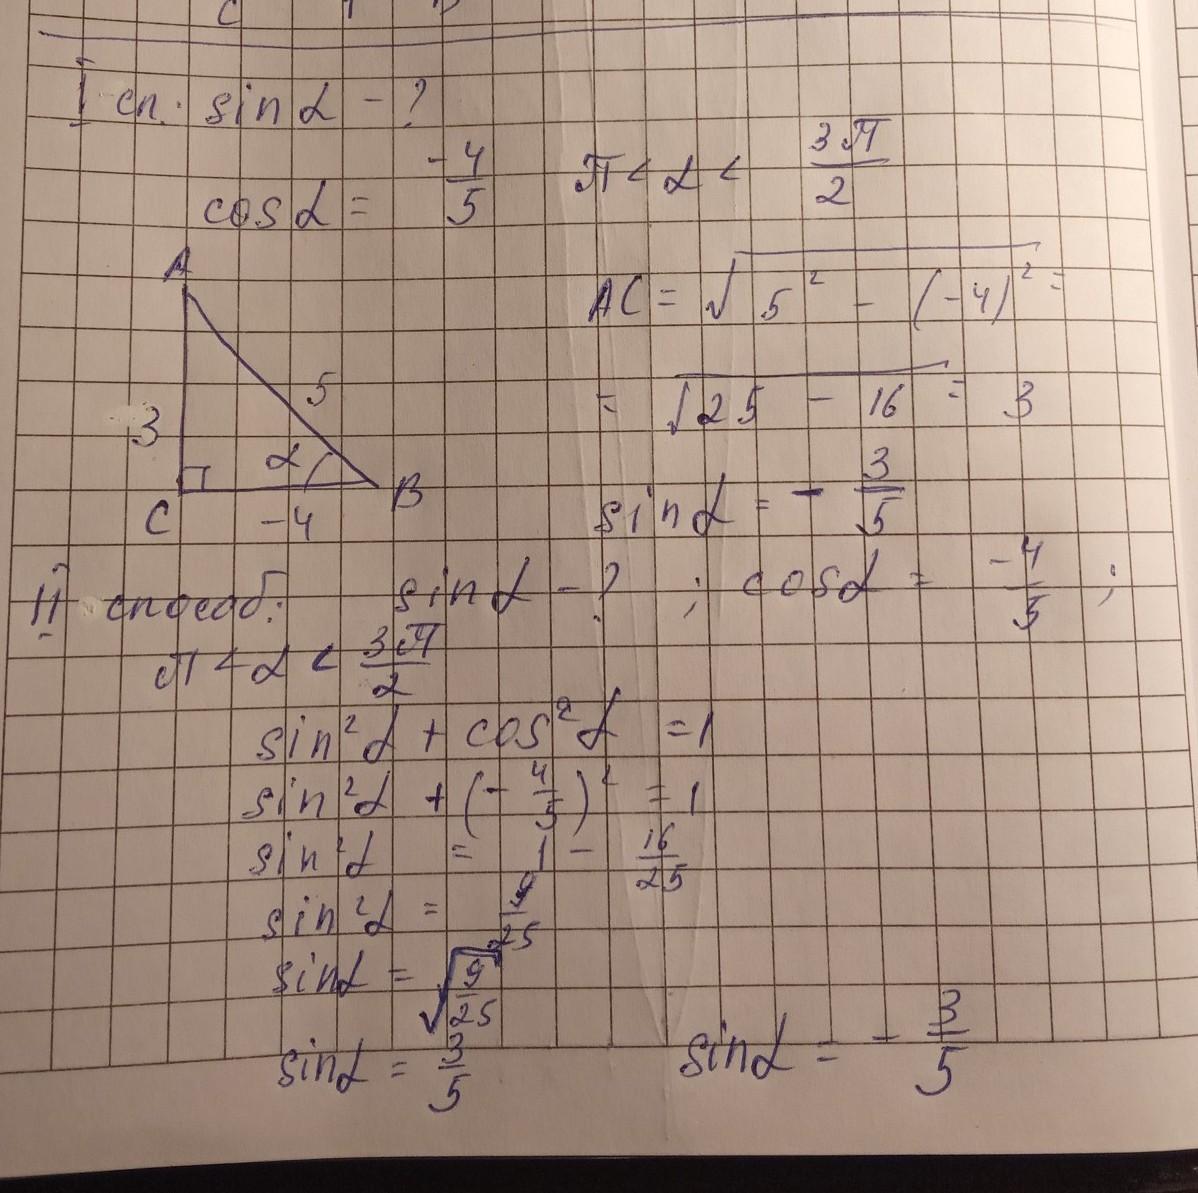 I сп. sin α - ?
cos α = -4/5   π < α < 3π/2
A
AC = √(5² - (-4)²) =
= √(25 - 16) = 3
5
3
α
C -4 B
sin α = - 3/5
II способ: sin α - ? ; cos α = -4/5 ;
π < α < 3π/2
sin²α + cos²α = 1
sin²α + (- 4/5)² = 1
sin²α = 1 - 16/25
sin²α = 9/25
sin α = √(9/25)
sin α = 3/5   sin α = - 3/5